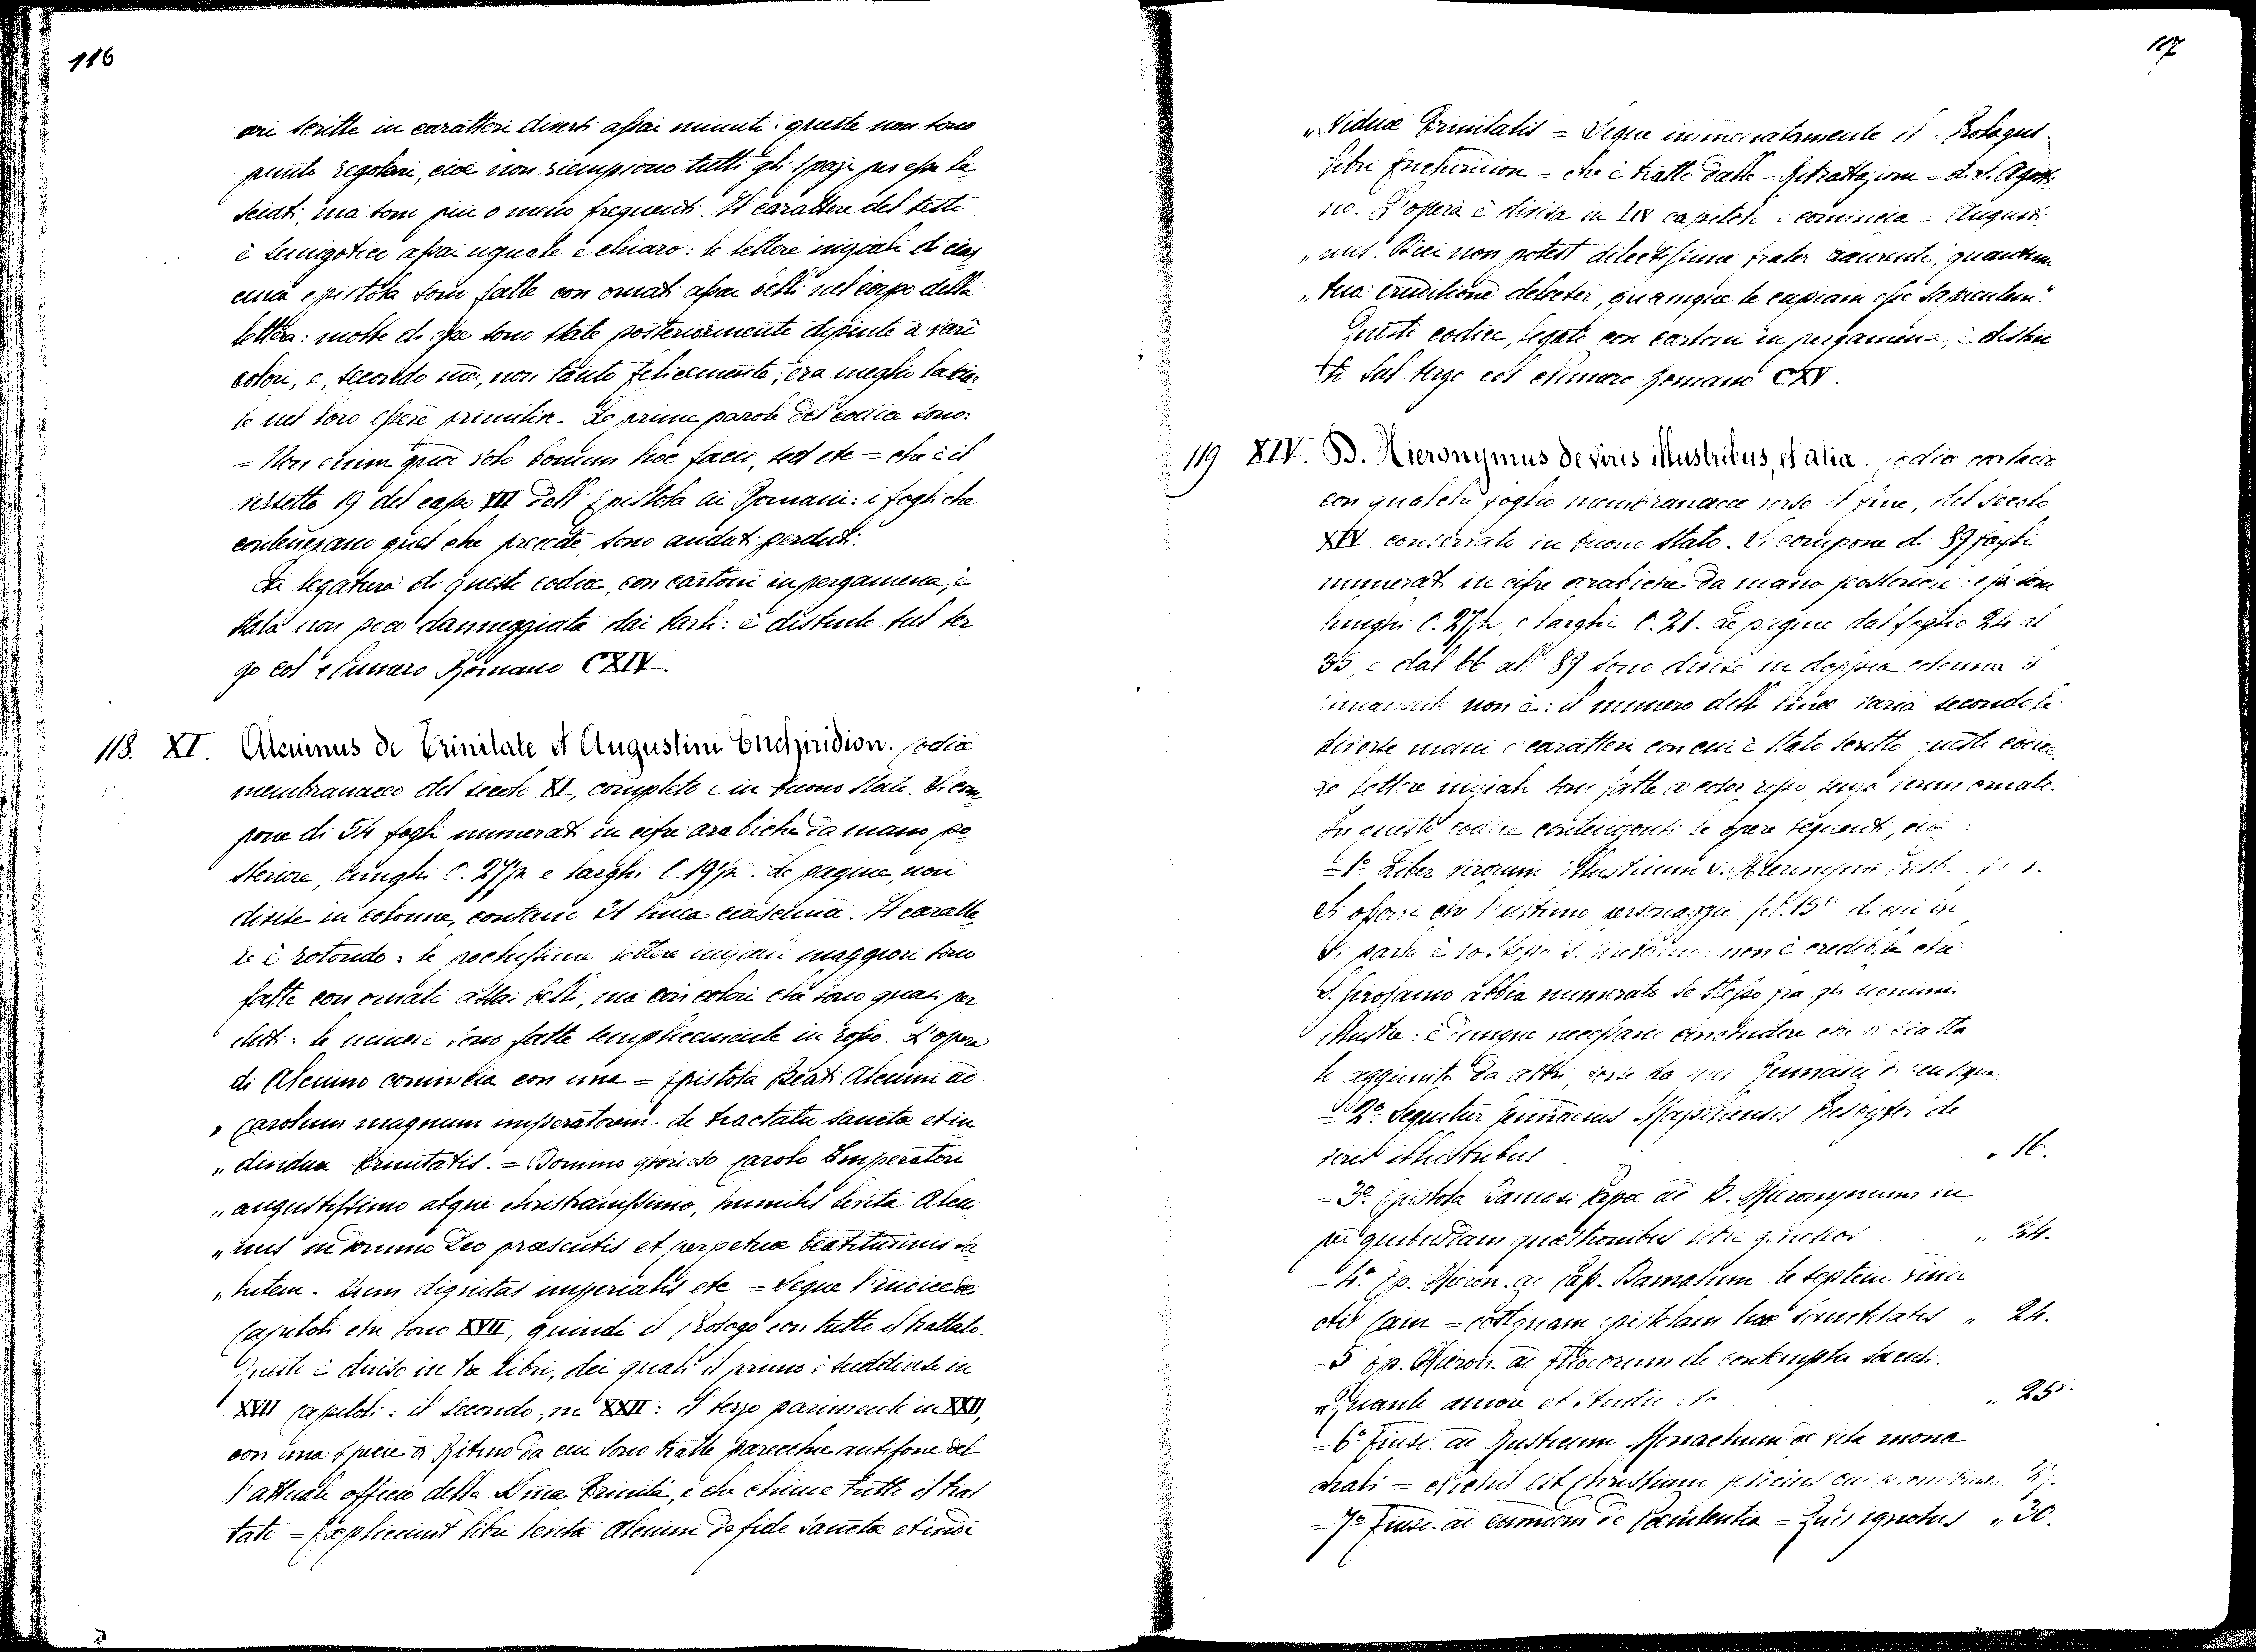 116
ori scritte in caratteri diversi assai minuti: queste non sono
punto regolari, cioè non riempiono tutti gli spazj per esse la¬
sciati, ma sono più o meno frequenti. Il carattere del testo
è semigotico assai uguale e chiaro: le lettere iniziali di cias
cuna epistola sono fatte con ornati assai belli nel corpo della
lettera: molte di esse sono state posteriormente dipinte a varii
colori, e, secondo me, non tanto felicemente; era meglio lasciar¬
le nel loro essere primitivo. Le prime parole del codice sono:
= Non enim quod volo bonum hoc facio, sed etc = che è il
versetto 19 del capo VII dell'Epistola ai Romani: i fogli che
contenevano quel che precede, sono andati perduti.
La legatura di questo codice, con cartoni in pergamena, è
stata non poco danneggiata dai tarli: è distinto sul ter
go col Numero Romano CXIV.
118. XI. Alcuinus de Trinitate et Augustini Enchiridion. Codice
membranaceo del secolo XI, completo e in buono stato. Si com
pone di 54 fogli numerati in cifre arabiche da mano po¬
steriore, lunghi C. 27 1/2 e larghi C. 19 1/2. Le pagine, non
divise in colonne, contano 31 linea ciascuna. Il caratte
re è rotondo: le pochissime lettere iniziali maggiori sono
fatte con ornati assai belli, ma con colori che sono quasi per
duti: le minori sono fatte semplicemente in rosso. L'opera
di Alcuino comincia con una = Epistola Beati Alcuini ad
„ Carolum magnum imperatorem de tractatu sanctæ et in
„ dividuæ Trinitatis. = Domino glorioso Carolo Imperatori
„ augustissimo atque christianissimo, humilis levita Alcui
„ nus in Domino Deo præsentis et perpetuæ beatitudinis sa¬
„ lutem. Dum dignitas imperialis etc = Segue l'indice de
Capitoli che sono XVII, quindi il Prologo con tutto il trattato.
Questo è diviso in tre libri, dei quali il primo è suddiviso in
XVII Capitoli: il secondo, in XXII: il terzo parimente in XXII,
con una specie di Ritmo da cui sono tratte parecchie antifone del
l'attuale officio della Dīna Trinità, e che chiude tutto il trat
tato = Expliciunt libri levitæ Alcuini de fide sanctæ et indi
117
„ viduæ Trinitatis = Segue immediatamente il Prologus
libri Enchiridion = che è tratto dalle Ritrattazioni = di S. Agosti
no. L'opera è divisa in capitoli e comincia = Augusti¬
„ nus. Dici non potest dilectissime frater Laurenti, quantum
„ tua eruditione delecter, quamque te cupiam esse sapientem."
Questo codice, legato con cartoni in pergamena, è distin
to sul tergo col Numero Romano CXV.
119 XIV. B. Hieronymus de viris illustribus, et alia. Codice cartaceo
con qualche foglio membranaceo verso il fine, del secolo
XIV, conservato in buono stato. Si compone di 89 fogli
numerati in cifre arabiche da mano posteriore: essi sono
lunghi C. 27 1/2, e larghi C. 21. Le pagine dal foglio 24 al
35, e dal 66 all' 89 sono divise in doppia colonna, il
rimanente non è: il numero delle linee varia secondo le
diverse mani e caratteri con cui è stato scritto questo codice.
Le lettere iniziali sono fatte a color rosso, senza verun ornato.
In questo codice contengonsi le opere seguenti, cioè:
= 1º. Liber virorum illustrium S. Hieronymi Presb. . . f. 1.
Si osservi che l'ultimo personaggio fol. 15, di cui ivi
si parla è lo stesso S. Girolamo: non è credibile che
S. Girolamo abbia numerato se stesso fra gli uomini
illustri: è dunque necessario concludere che vi sia sta
to aggiunto da altri, forse da Gennadio
= 2º. Sequitur Gennadius Massiliensis Presbyter de
viris illustribus „ 16.
= 3º. Epistola Damasi Papæ ad B. Hieronymum
pro quibusdam quæstionibus libri „ 24.
= 4º. Ep. Hieron. ad Pap. Damasum de septem vindi
ctis Cain = Postquam epistolam tuæ sanctitatis „ 24.
= 5º Ep. Hieron. ad Eliodorum de contemptu sæculi.
= Quanto amore et studio etc „ 25
= 6º Ejusd. ad Rusticum Monachum de vita mona
chali = Nichil est Christiano felicius cui 27.
= 7º Ejusd. ad eumdem de Pænitentia = Quis ignotus „ 30.